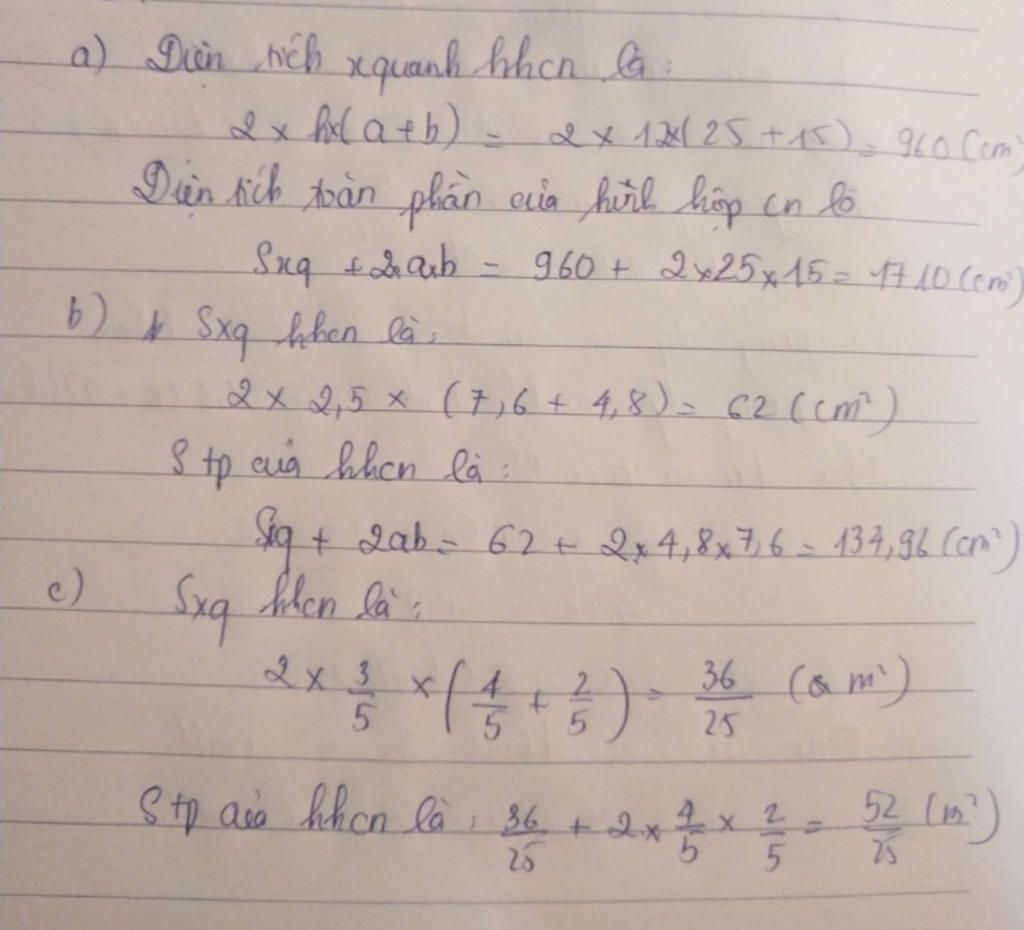 a) Diện tích xquanh hhcn là:
2 × h×(a+b) = 2 × 12×(25+15) = 960 (cm²)
Diện tích toàn phần của hình hộp cn là
Sxq + 2×a×b = 960 + 2×25×15 = 1710 (cm²)
b) Sxq hhcn là:
2 × 2,5 × (7,6 + 4,8) = 62 (cm²)
Stp của hhcn là:
Sxq + 2ab = 62 + 2×4,8×7,6 = 134,96 (cm²)
c) Sxq hhcn là:
2 × 3/5 × (4/5 + 2/5) = 36/25 (m²)
Stp của hhcn là: 36/25 + 2 × 4/5 × 2/5 = 52/25 (m²)